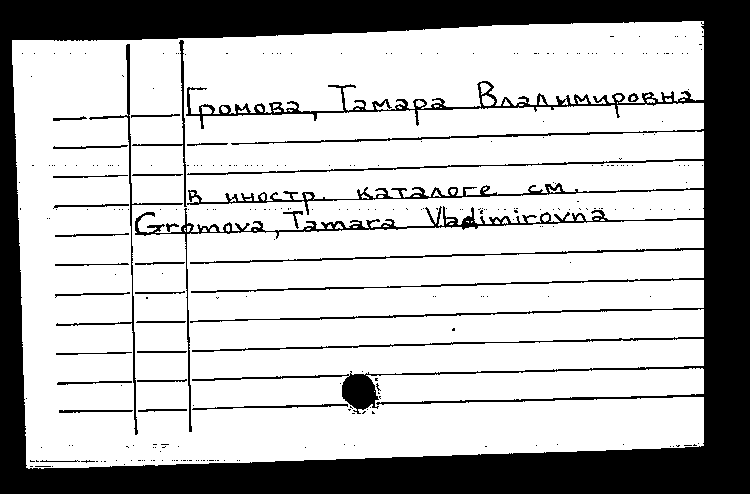 Громова, Тамара Владимировна
в иностр. каталоге см.
Gromova, Tamara Vladimirovna